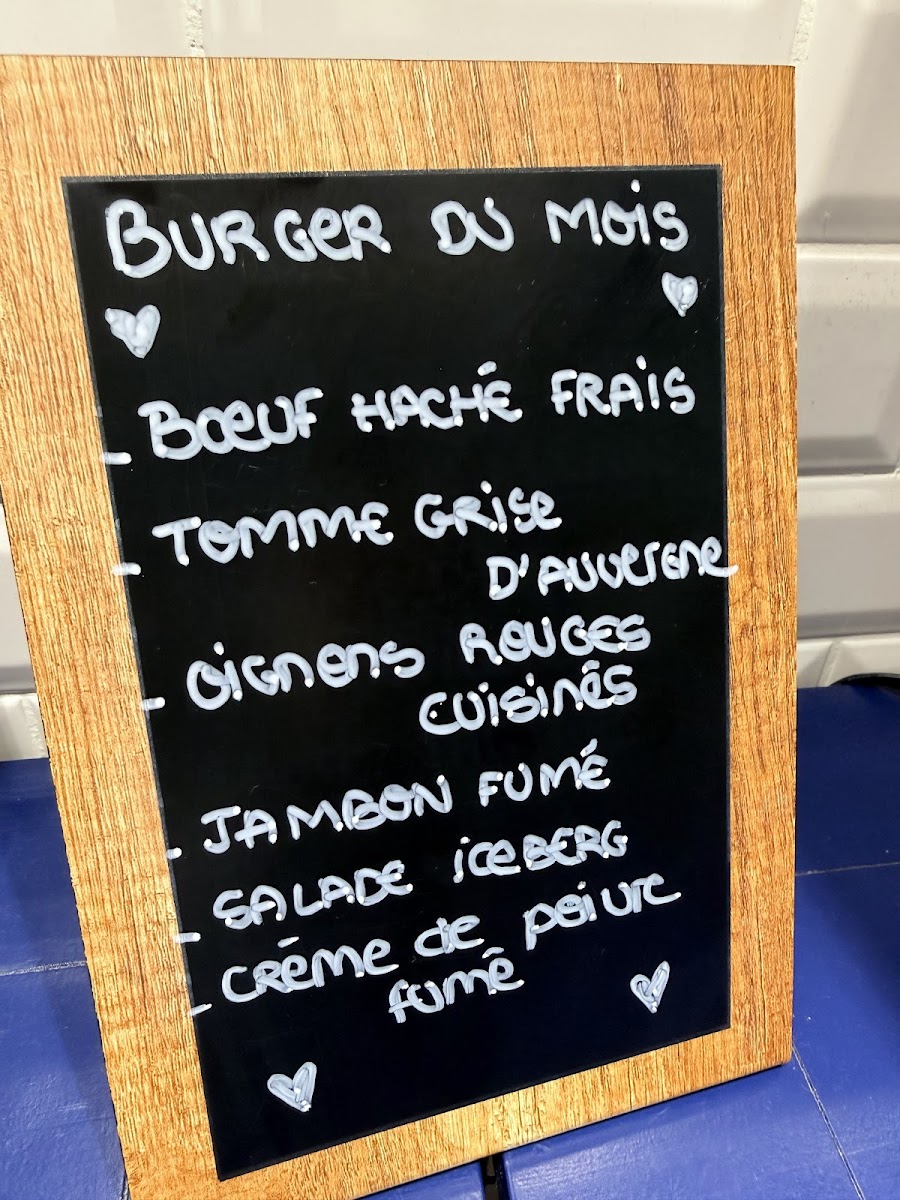 BURGER DU MOIS
- BŒUF HACHÉ FRAIS
- TOMME GRISE
D'AUVERGNE
- OIGNONS ROUGES
CUISINÉS
- JAMBON FUMÉ
- SALADE ICEBERG
- CRÈME de poivre
fumé